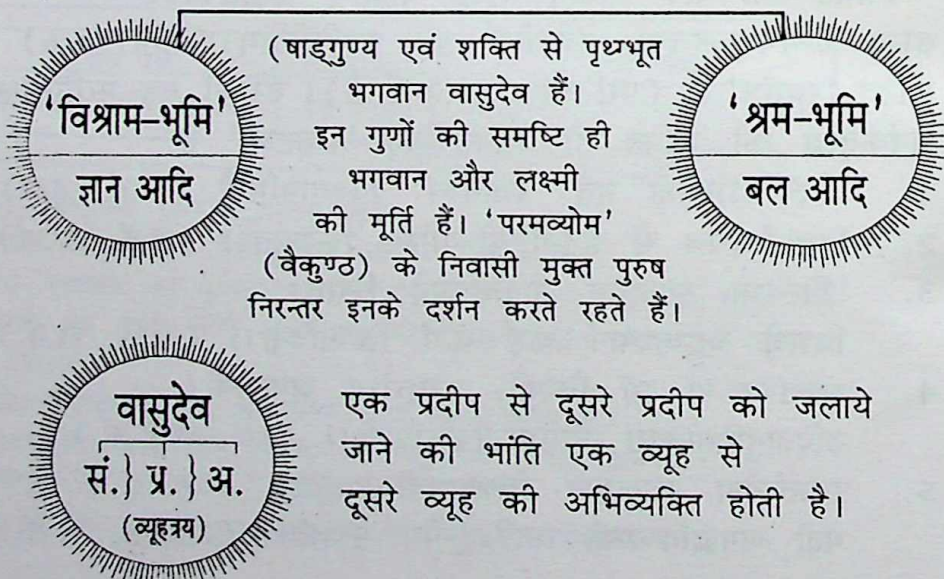 'विश्राम-भूमि'
ज्ञान आदि
(षाड्गुण्य एवं शक्ति से पृथग्भूत
भगवान वासुदेव हैं।
इन गुणों की समष्टि ही
भगवान और लक्ष्मी
की मूर्ति हैं। 'परमव्योम'
(वैकुण्ठ) के निवासी मुक्त पुरुष
निरन्तर इनके दर्शन करते रहते हैं।
'श्रम-भूमि'
बल आदि
वासुदेव
सं.} प्र.} अ.
(व्यूहत्रय)
एक प्रदीप से दूसरे प्रदीप को जलाये
जाने की भांति एक व्यूह से
दूसरे व्यूह की अभिव्यक्ति होती है।